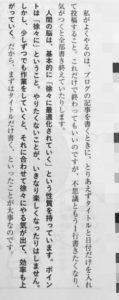 私がよくやるのは、ブログの記事を書くときに、とりあえずタイトルと日付だけを入れ
て投稿すること。これだけで終わってもいいのですが、不思議ともう1行書きたくなり、
気がつくと全部書き終えていたりします。
人間の脳は、基本的に「徐々に最適化されていく」という性質を持っています。ポイン
トは「徐々に」ということ。やりたくないことが、いきなり楽しくなったりはしません。
しかし、少しずつでも作業をしていくと、それに合わせて徐々にやる気が出て、効率も上
がっていく。だから、まずはタイトルだけ書く、といったことが大事なのです。